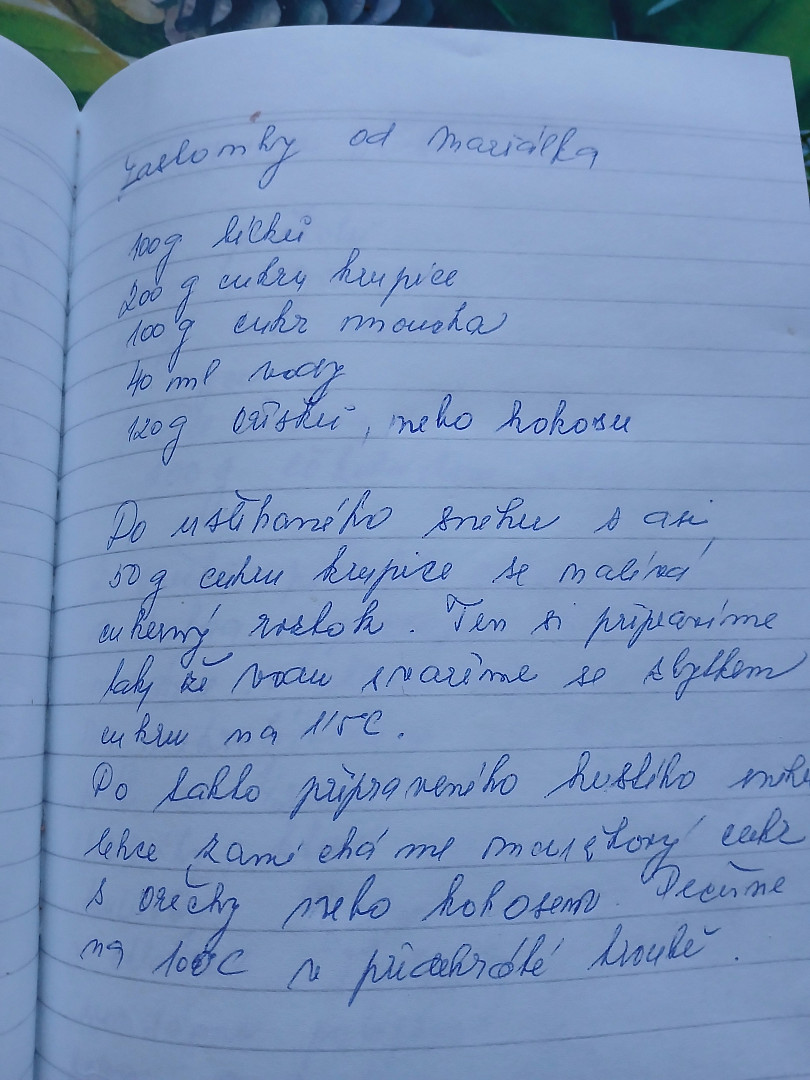 Zaslomky od Mariálka
100g bílků
200 g cukru krupice
100g cukr moucka
40 ml vody
120g oříšků, nebo kokosu
Do ušlehaného sněhu s asi
50g cukru krupice se nalívá
cukerný roztok. Ten si připravíme
tak, že vodu svaříme se zbytkem
cukru na 115C.
Do takto připraveného hustého sněhu
lehce zamícháme moučkový cukr
s ořechy nebo kokosem. Pečeme
na 100C v předehřáté troubě.